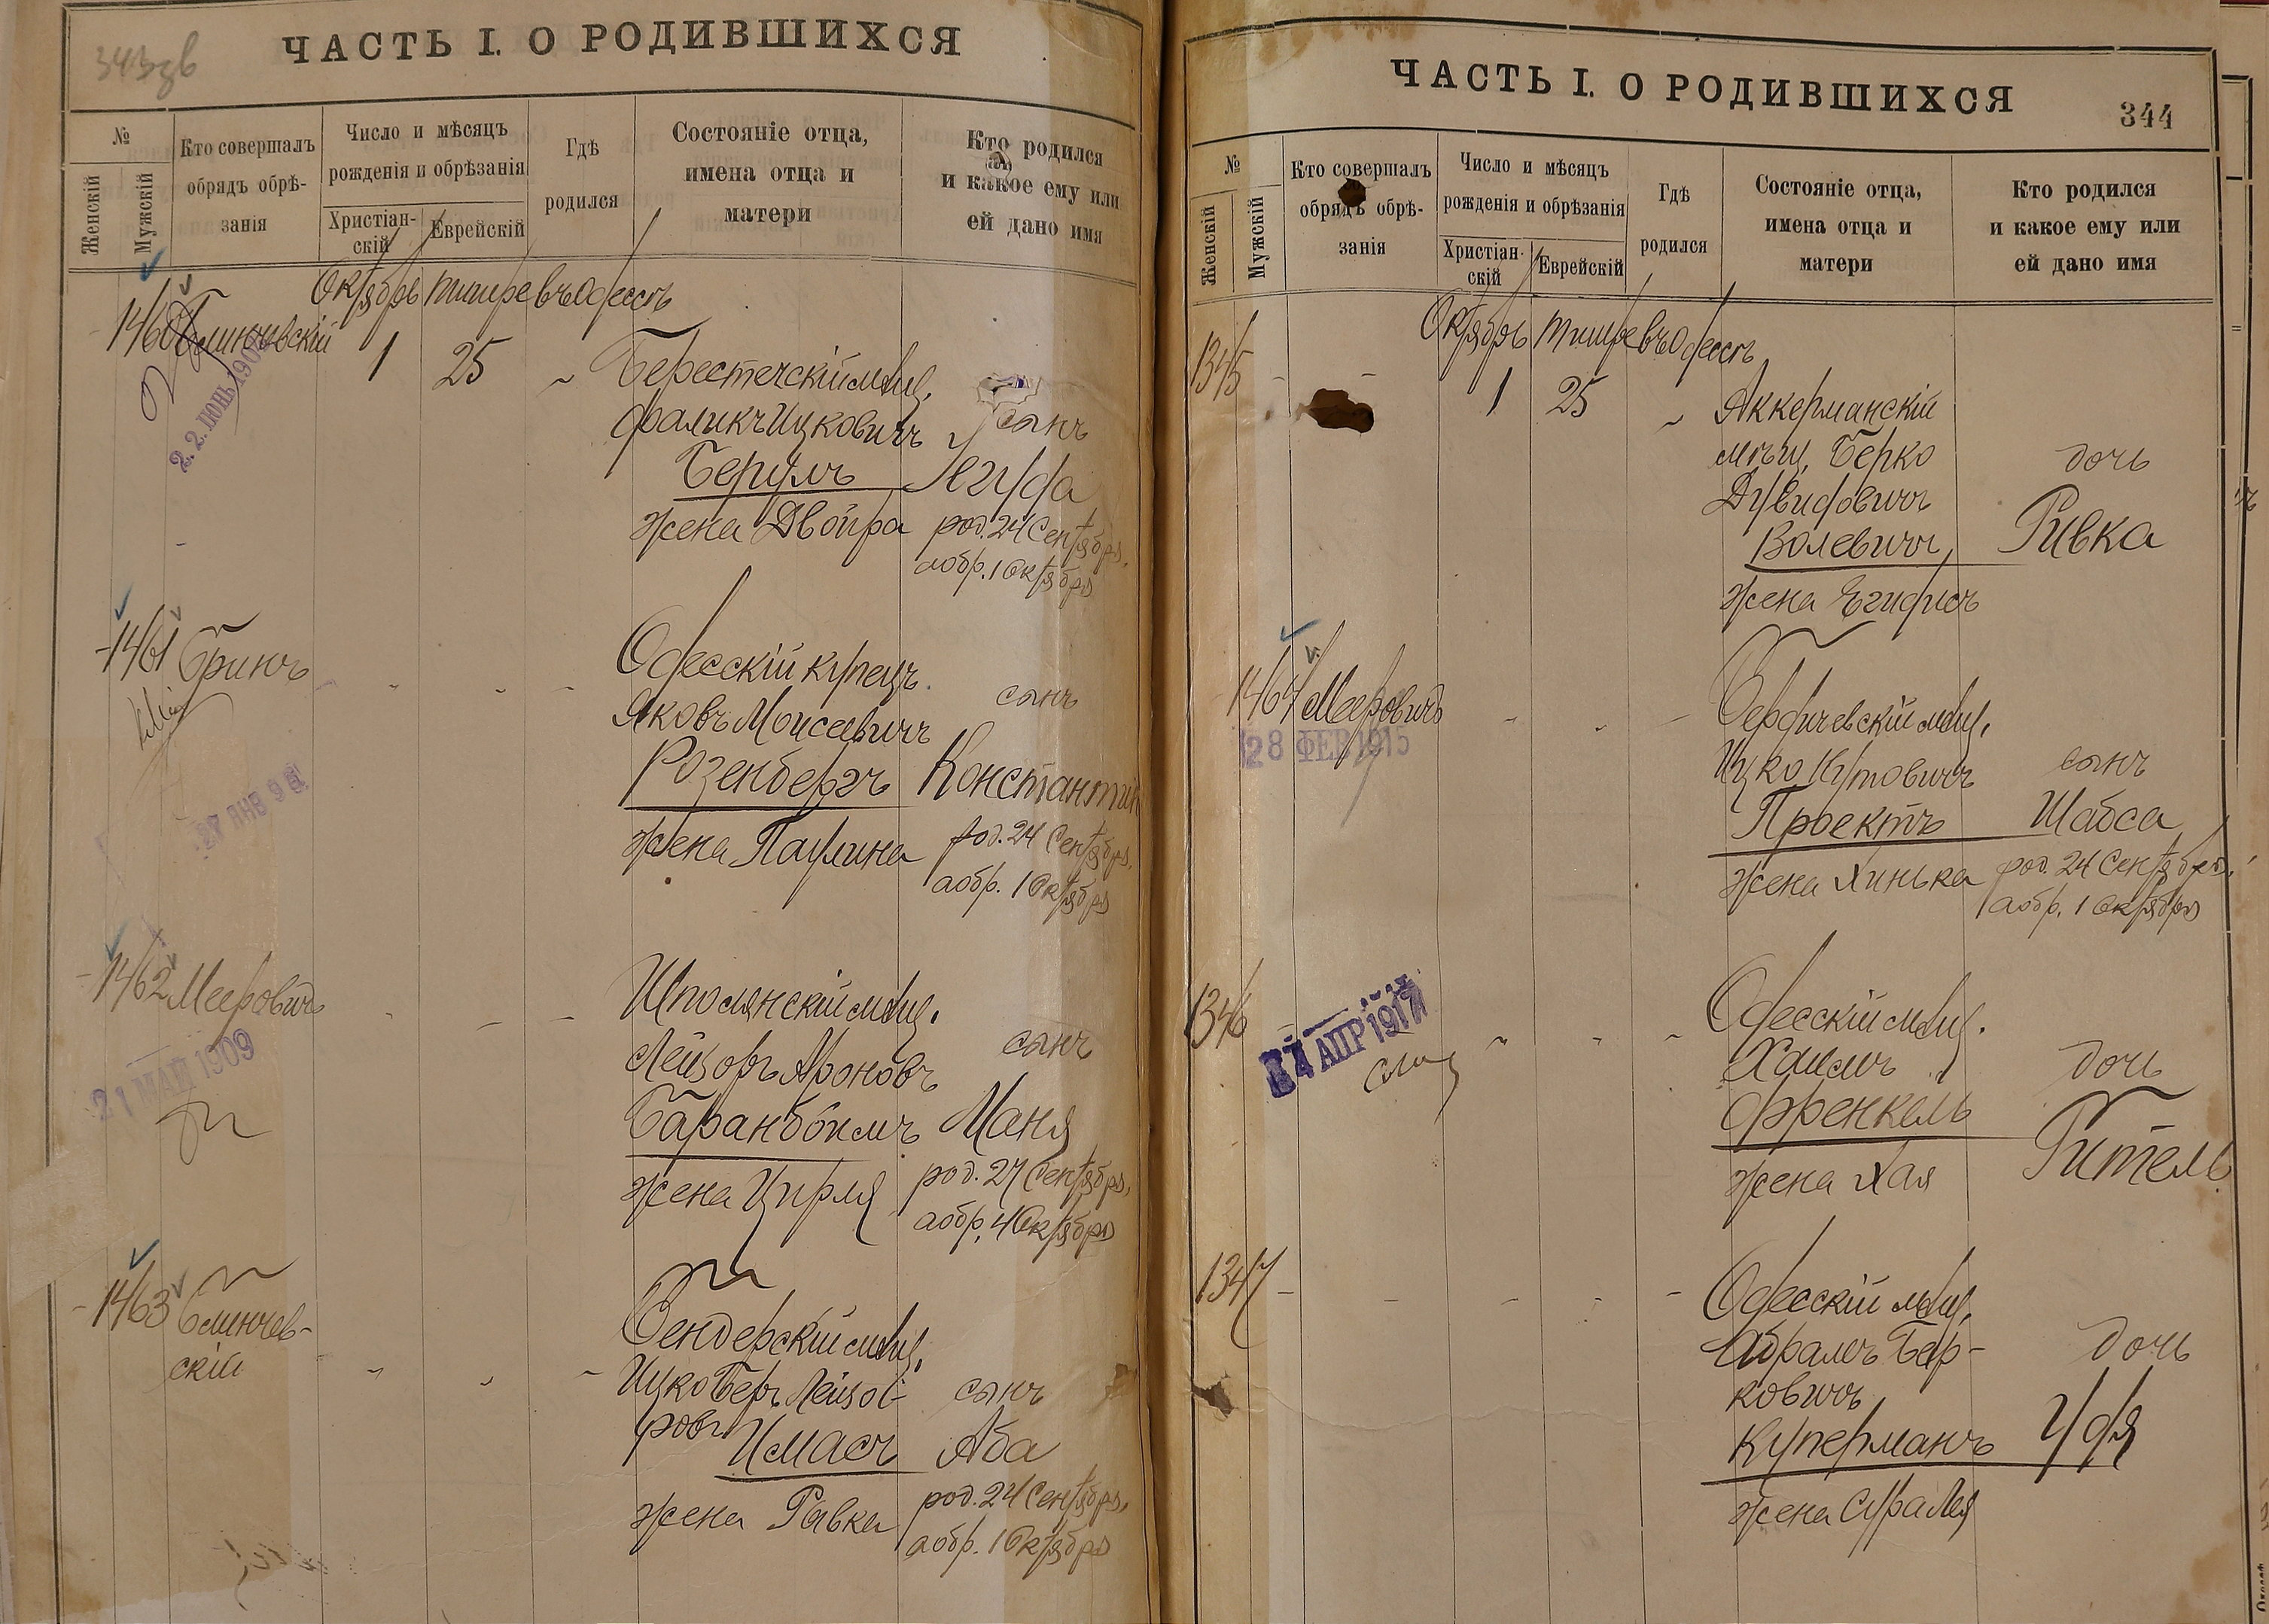 343об
ЧАСТЬ I. О РОДИВШИХСЯ
№
Женскій
Мужскій
Кто совершалъ
обрядъ обрѣ-
занія
Число и мѣсяцъ
рожденія и обрѣзанія
Христіан-
скій
Еврейскій
Гдѣ
родился
Состояніе отца,
имена отца и
матери
Кто родился
и какое ему или
ей дано имя
Октябрь Тишре въ Одессѣ
1460 Блинчевскій
1 25
Берестечскій мѣщ.
Фаликъ Ицковичъ сынъ
Берулъ Іегуда
жена Двойра род. 24 Сентября,
а обр. 1 Октября
1461 Гринъ
Одесскій купецъ
Яковъ Моисеевичъ сынъ
Розенбергъ Константин
жена Паулина род. 24 Сентября,
а обр. 1 Октября
1462 Мееровичъ
21 МАЙ 1909
Шполянскій мѣщ.
Лейзоръ Ароновъ сынъ
Баранбоимъ Маня
жена Цирля род. 27 Сентября,
а обр. 4 Октября
1463 Блинчев-
скій
Бендерскій мѣщ.
Ицко Беръ Лейзо- сынъ
ровъ
Имасъ Аба
жена Ривка род. 24 Сентября,
а обр. 1 Октября
ЧАСТЬ I. О РОДИВШИХСЯ
344
№
Женскій
Мужскій
Кто совершалъ
обрядъ обрѣ-
занія
Число и мѣсяцъ
рожденія и обрѣзанія
Христіан-
скій
Еврейскій
Гдѣ
родился
Состояніе отца,
имена отца и
матери
Кто родился
и какое ему или
ей дано имя
Октябрь Тишре въ Одессѣ
1345
1 25
Аккерманскій
мѣщ. Берко дочь
Дувидовичъ
Волевичъ, Ривка
жена Егудисъ
1464 Мееровичъ
28 ФЕВ 1915
Бердичевскій мѣщ.
Ицко Нутовичъ сынъ
Проектъ Шабса
жена Хинька род. 24 Сентября,
а обр. 1 Октября
1346
24 АПР 1917
Одесскій мѣщ.
Хаимъ дочь
Френкель Гитель
жена Хая
1347
Одесскій мѣщ.
Абрамъ Бер- дочь
ковичъ
Куперманъ Удя
жена Сура Лея